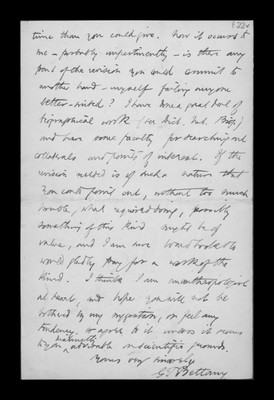 time than you could give. Now it occurs to
me – probably impertinently – is there any
part of the revision you could commit to
another hand – myself failing any one
better-suited? I have done a great deal of
biographical work (see Dict. Nat. Biog.)
and have some faculty for searching out
collaterals and points of interest. If the
revision needed is of such a nature that
you could furnish one, without too much
trouble, what required doing, possibly
something of this kind might be of
value, and I am sure
would gladly pay for a work of the
kind. I think I am anthropological
at heart, and hope you will not be
bothered by my suggestion, or feel any
tendency to agree to it unless it seems
to you distinctly advisable on scientific grounds.
Yours very sincerely
G T Bettany